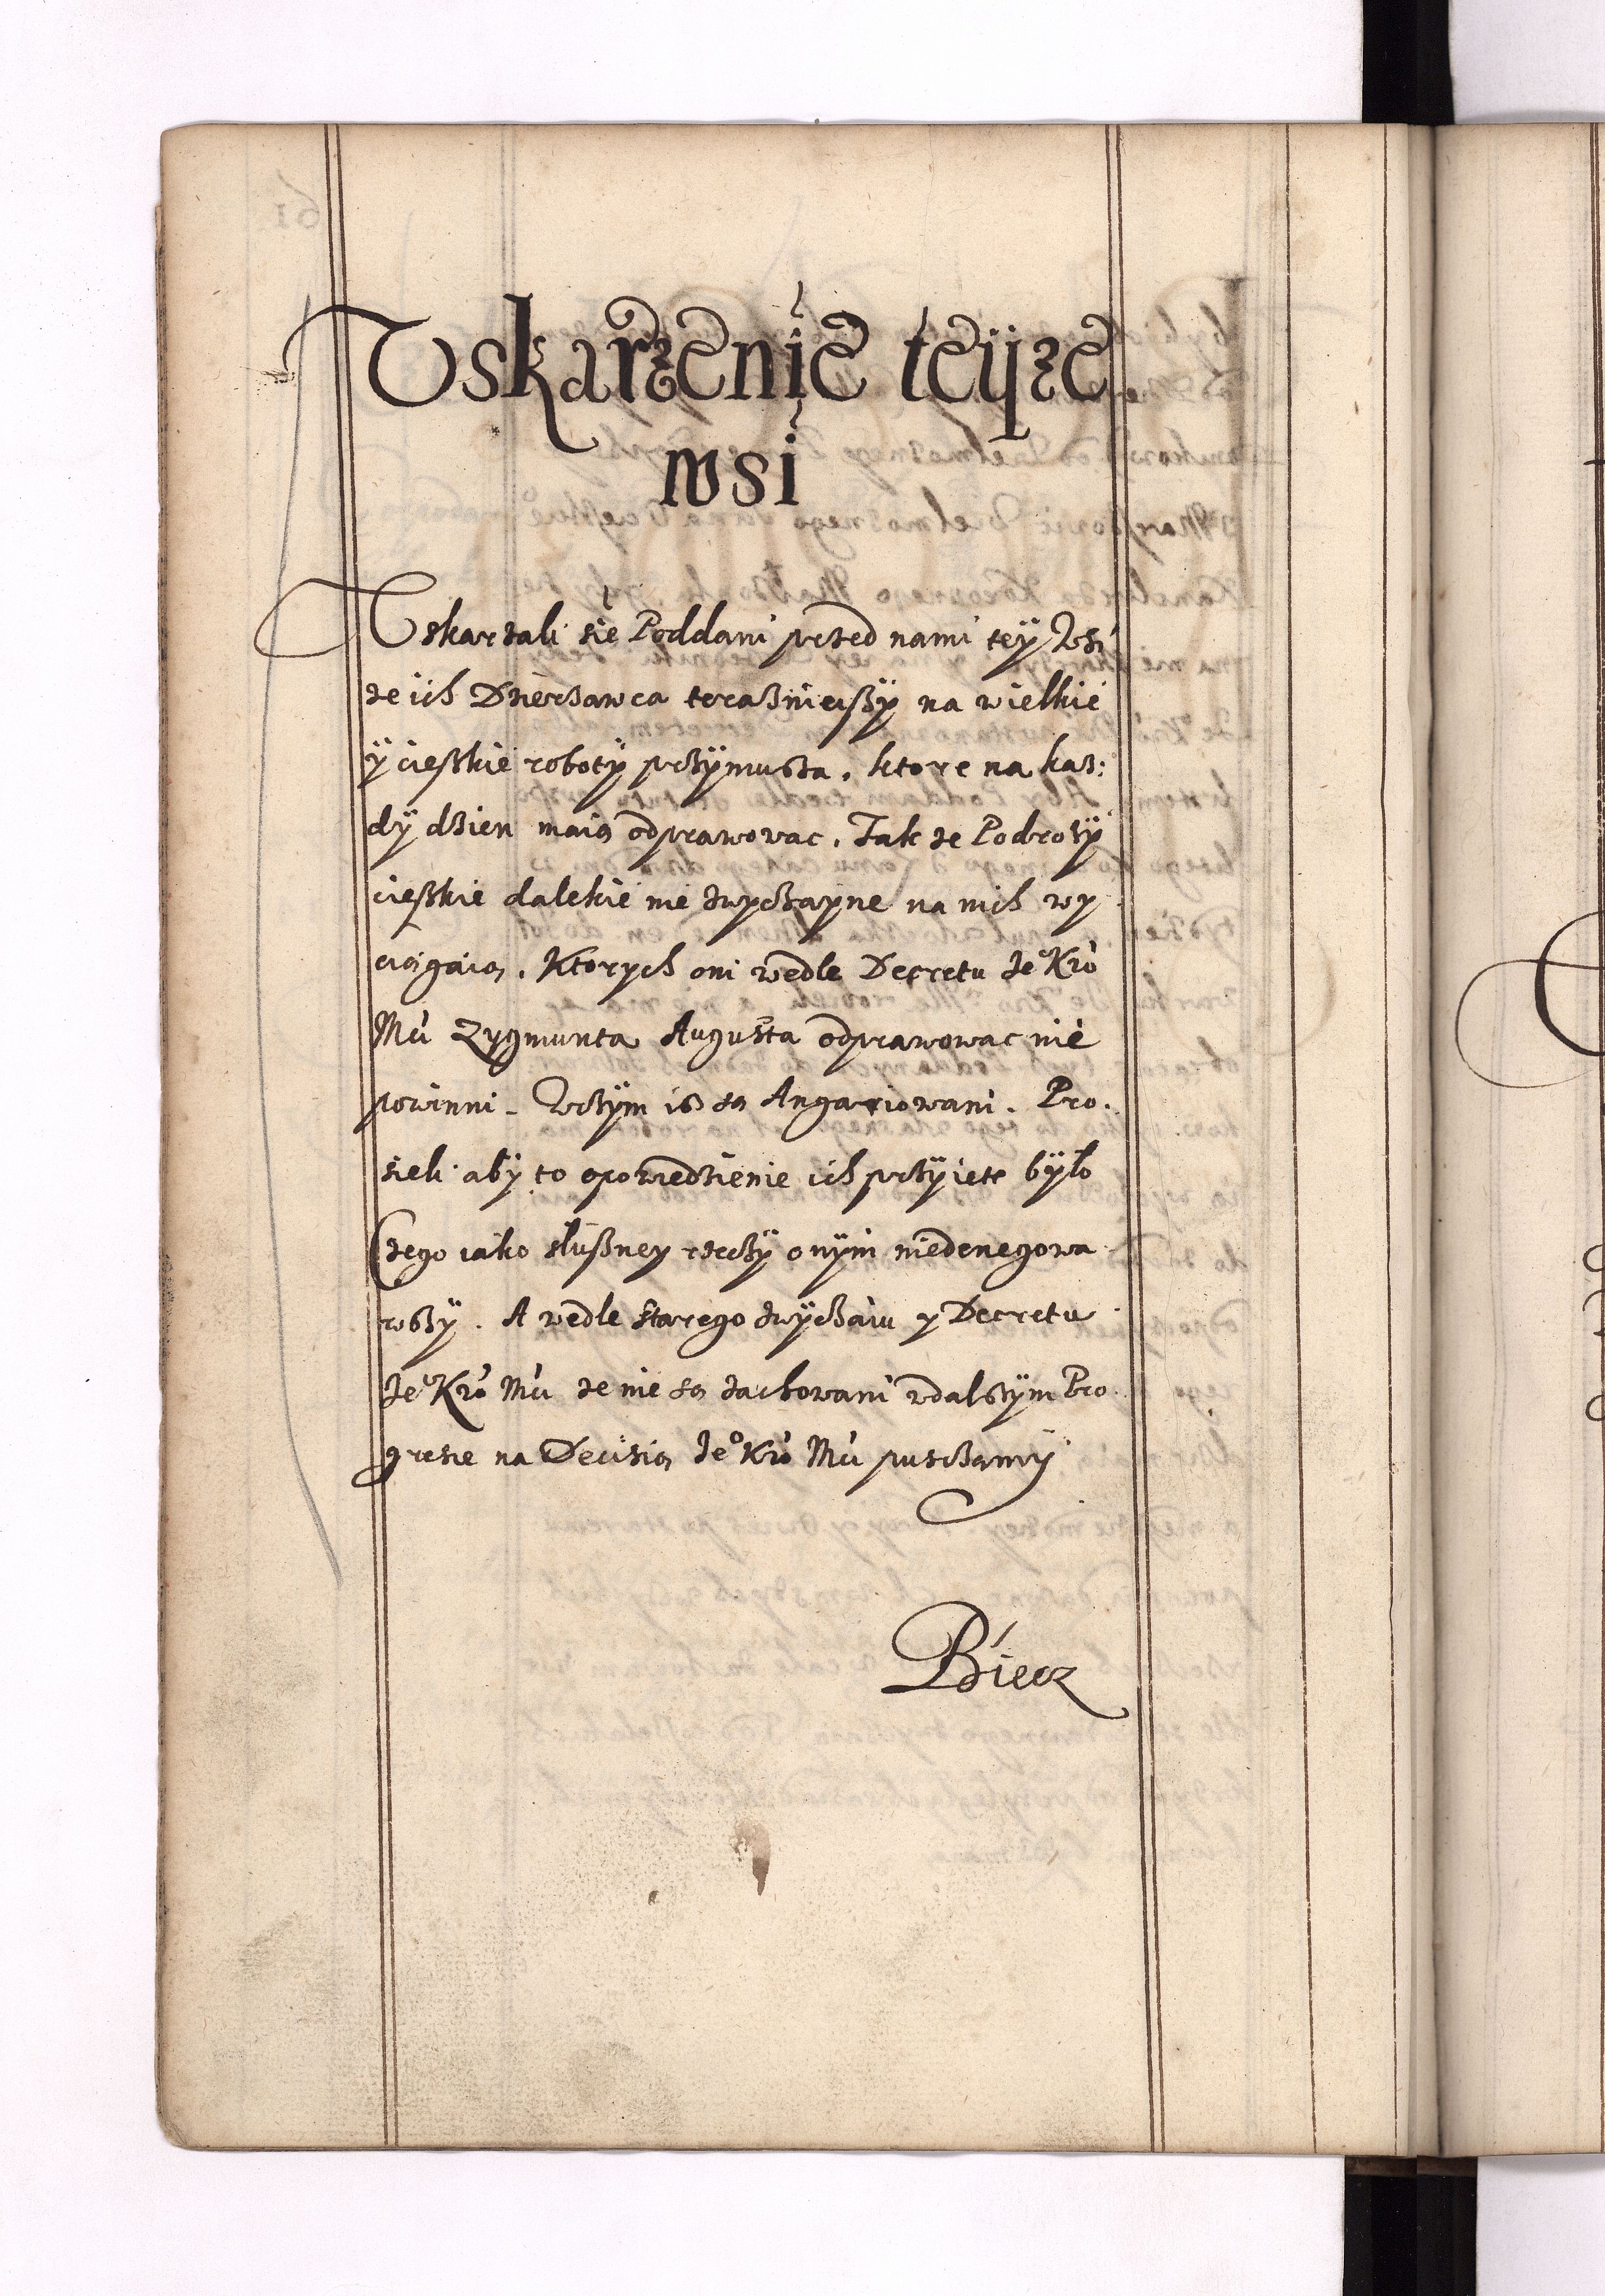 Uskarzenie teyze
wsi
Uskarzali się Poddani przed nami tey Wsi
ze ich Dzierzawca terasznieyszy na wielkie
y cieszkie roboty przymusza, ktore na kaz:
dy dzien maią odprawowac. Tak ze Podrozy
cieszkie dalekie nie zwyczayne na nich wy
ciągaią. Ktorych oni wedle Decretu Je° Kro
Mci Zygmunta Augusta odprawowac nie
powinni. Wczym isz są Angariowani. Pro.
sieli aby to opowiedzienie ich przyięte było
Czego iako słuszney rzeczy onym niedenegowa
wszy. A wedle starego zwyczaiu y Decretu
Je° Kro Mci ze nie są zachowani wdalszym Pro
gresie na Decisią Je° Kro Mci pusczamy
Biecz